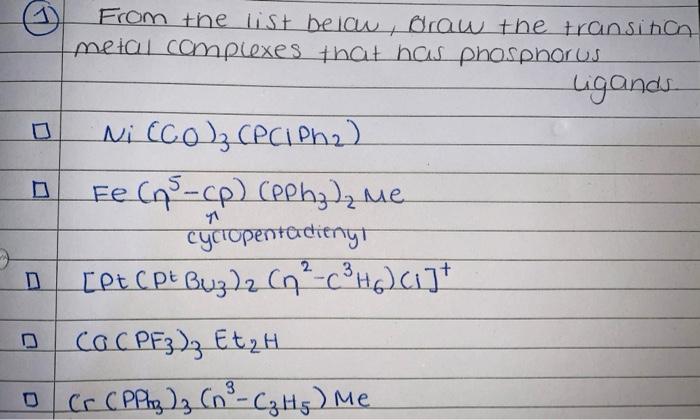 ① From the list below, Draw the transition
metal complexes that has phosphorus
ligands.
Ni (CO)₃ (PClPh₂)
Fe (η⁵-Cp) (PPh₃)₂ Me
↑
cyclopentadienyl
[Pt (PᵗBu₃)₂ (η²-C³H₆)Cl]⁺
Co(PF₃)₃ Et₂H
Cr (PPh₃)₃ (η³-C₃H₅) Me